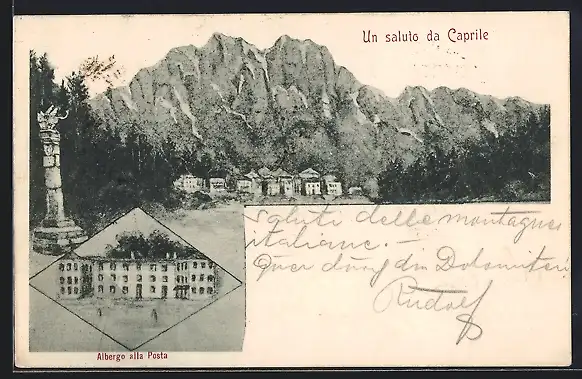 Un saluto da Caprile
Saluti delle montagnes
italiane. —
Quer durch die Dolomiten
Rudolf
Albergo alla Posta